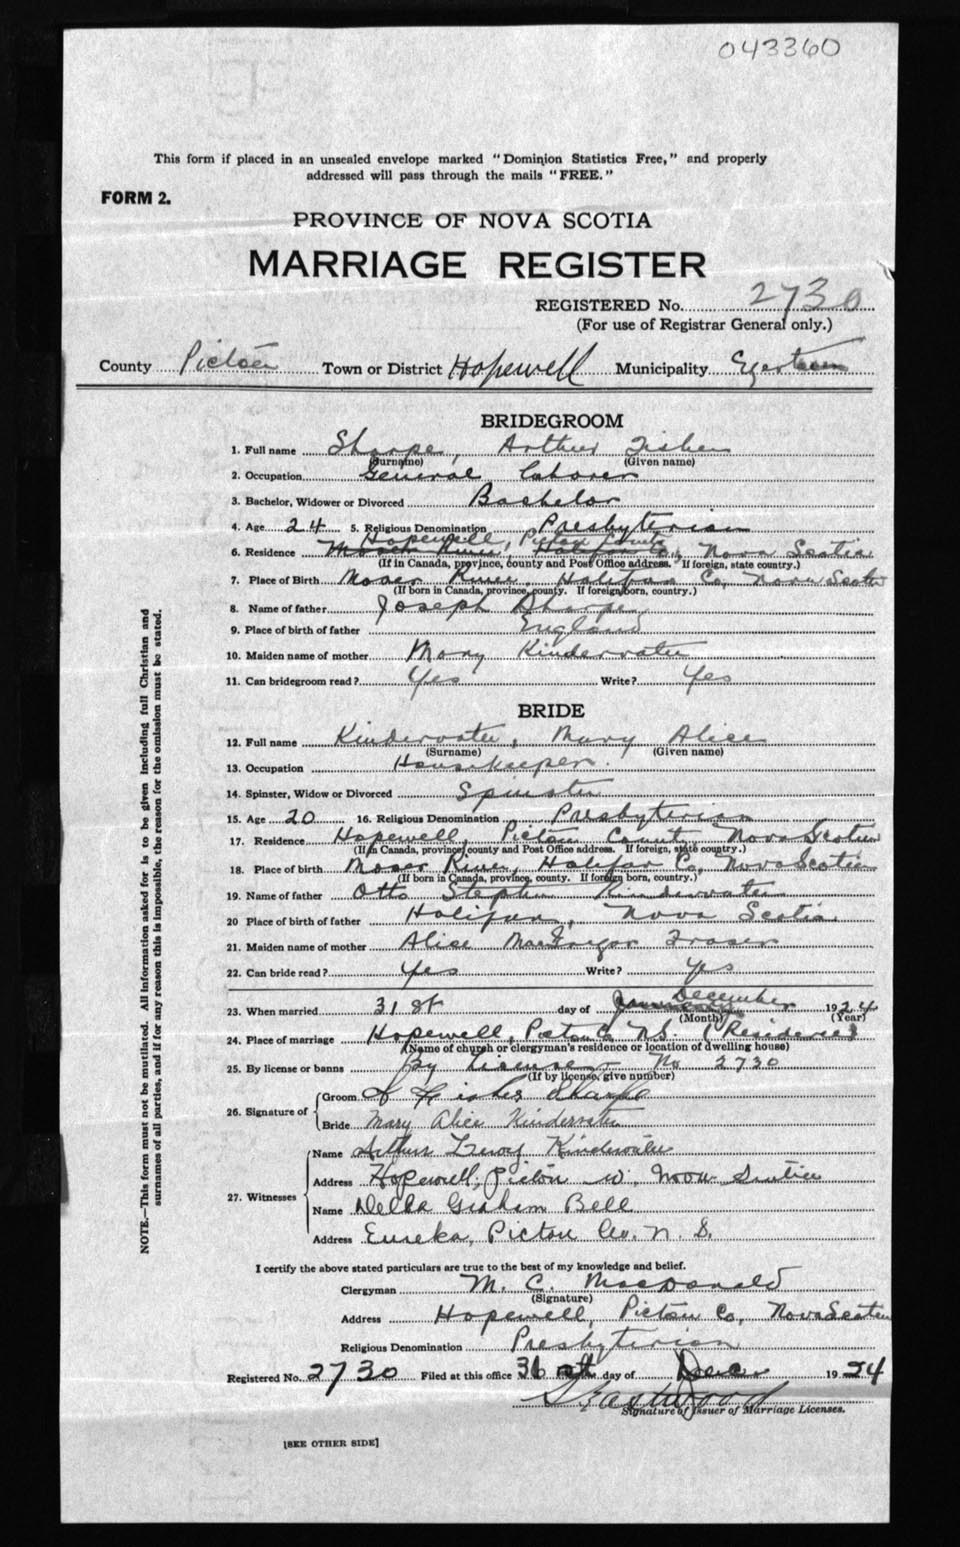 043360
This form if placed in an unsealed envelope marked "Dominion Statistics Free," and properly
addressed will pass through the mails "FREE."
FORM 2.
PROVINCE OF NOVA SCOTIA
MARRIAGE REGISTER
REGISTERED No. 2730
(For use of Registrar General only.)
County Pictou Town or District Hopewell Municipality
BRIDEGROOM
1. Full name Sharpe, Arthur Fisher
(Surname) (Given name)
2. Occupation General Laborer
3. Bachelor, Widower or Divorced Bachelor
4. Age 24 5. Religious Denomination Presbyterian
Hopewell, Pictou County
6. Residence Moser River, Halifax Co., Nova Scotia
(If in Canada, province, county and Post Office address. If foreign, state country.)
7. Place of Birth Moser River, Halifax Co, Nova Scotia
(If born in Canada, province, county. If foreign born, country.)
8. Name of father Joseph Sharpe
9. Place of birth of father England
10. Maiden name of mother Mary Kindervater
11. Can bridegroom read? Yes Write? Yes
BRIDE
12. Full name Kindervater, Mary Alice
(Surname) (Given name)
13. Occupation Housekeeper.
14. Spinster, Widow or Divorced Spinster
15. Age 20 16. Religious Denomination Presbyterian
17. Residence Hopewell, Pictou County Nova Scotia
(If in Canada, province, county and Post Office address. If foreign, state country.)
18. Place of birth Moser River, Halifax Co, Nova Scotia
(If born in Canada, province, county. If foreign born, country.)
19. Name of father Otto Stephen Kindervater
20 Place of birth of father Halifax, Nova Scotia
21. Maiden name of mother Alice MacGregor Fraser
22. Can bride read? Yes Write? Yes
December
23. When married 31 st day of January 1924
(Month) (Year)
24. Place of marriage Hopewell, Pictou Co N.S. (Residence)
(Name of church or clergyman's residence or location of dwelling house)
25. By license or banns By License No 2730
(If by license, give number)
26. Signature of Groom A Fisher Sharpe
Bride Mary Alice Kindervater
27. Witnesses
Name Arthur Kindervater
Address Hopewell, Pictou Co, Nova Scotia
Name Della Graham Bell
Address Eureka, Pictou Co. N. S.
I certify the above stated particulars are true to the best of my knowledge and belief.
Clergyman M. C. MacDonald
(Signature)
Address Hopewell, Pictou Co, Nova Scotia
Religious Denomination Presbyterian
Registered No. 2730 Filed at this office 31 st day of Dec 1924
Signature of Issuer of Marriage Licenses.
[SEE OTHER SIDE]
NOTE.—This form must not be mutilated. All information asked for is to be given including full Christian and
surnames of all parties, and if for any reason this is impossible, the reason for the omission must be stated.